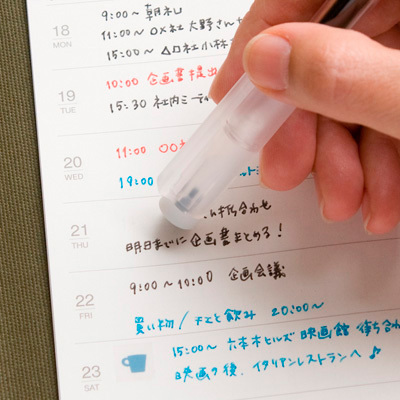 18
MON
9:00～朝礼
11:00～ 〇×社 大野さん
15:00～ △□社 小林
19
TUE
10:00 企画書提出
15:30 社内ミーティ
20
WED
11:00 〇〇
19:00
21
THU
打ち合わせ
明日までに企画書まとめる！
22
FRI
9:00～10:00 企画会議
買い物/ 飲み 20:00～
23
SAT
15:00～ 六本木ヒルズ 映画館 待ち合わ
映画の後、イタリアンレストランへ♪